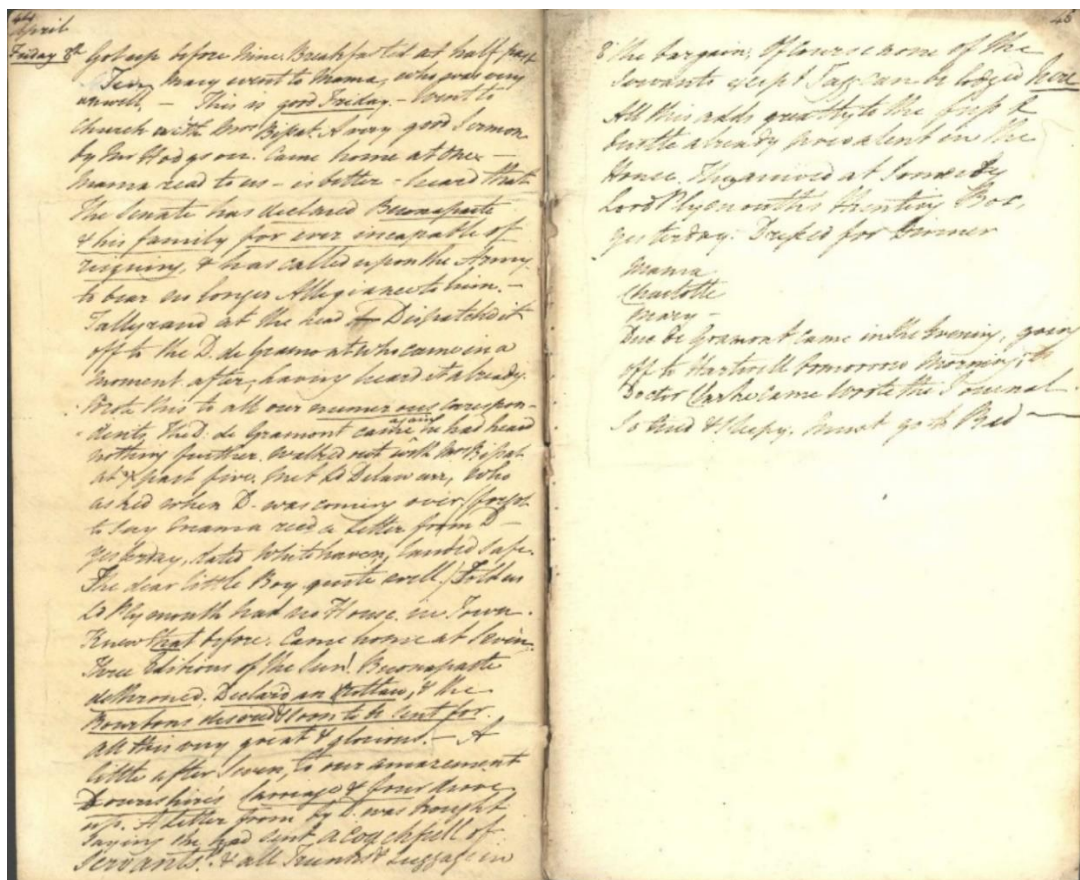 44
April
Friday 8th Got up before Nine. Breakfasted at half past
Ten, Mary went to Mama, who was very
unwell, — This is good Friday. — Went to
Church with Mrs Bisset. A very good Sermon
by Mr Hodgson. Came home at One —
Mama read to us — is better — heard that
The Senate has declared Buonaparte
& his family for ever incapable of
reigning, & has called upon the Army
to bear no longer Allegiance to him. —
Tallyrand at the head — Dispatched it
off to the D. de Gramont who came in a
moment after, having heard it already.
Wrote this to all our numerous correspon-
dents, The D. de Gramont came again he had heard
nothing further. Walked out with Mrs Bisset
at past five. Met Ld Delawarr, who
asked when D. was coming over (forgot
to say Mama recd a letter from D —
yesterday, dated Whitehaven, landed safe.
The dear little Boy quite well.) Told us
Ld Plymouth had no House in Town.
Knew that before. Came home at Seven.
Three Editions of the Sun! Buonaparte
dethroned, Declar'd an Outlaw, & the
Bourbons desired soon to be sent for.
all this very great & glorious. — A
little after Seven, to our amazement
Downshire's Carriage & four drove
up. A letter from D. was brought
saying she had sent a coachfull of
Servants!! & all Trunks & Luggage in
45
the bargain; Of course none of the
Servants except Tag can be lodged here
All this adds greatly to the fuss &
bustle already prevalent in the
House. They arrived at
Lord Plymouth's Hunting Box,
yesterday. Dressed for Dinner
Mama
Charlotte
Mary —
Duc de Gramont came in the Evening, going
off to Hartwell tomorrow Morning;
Doctor Clarke came Wrote the Journal
So tired & sleepy. Must go to Bed —